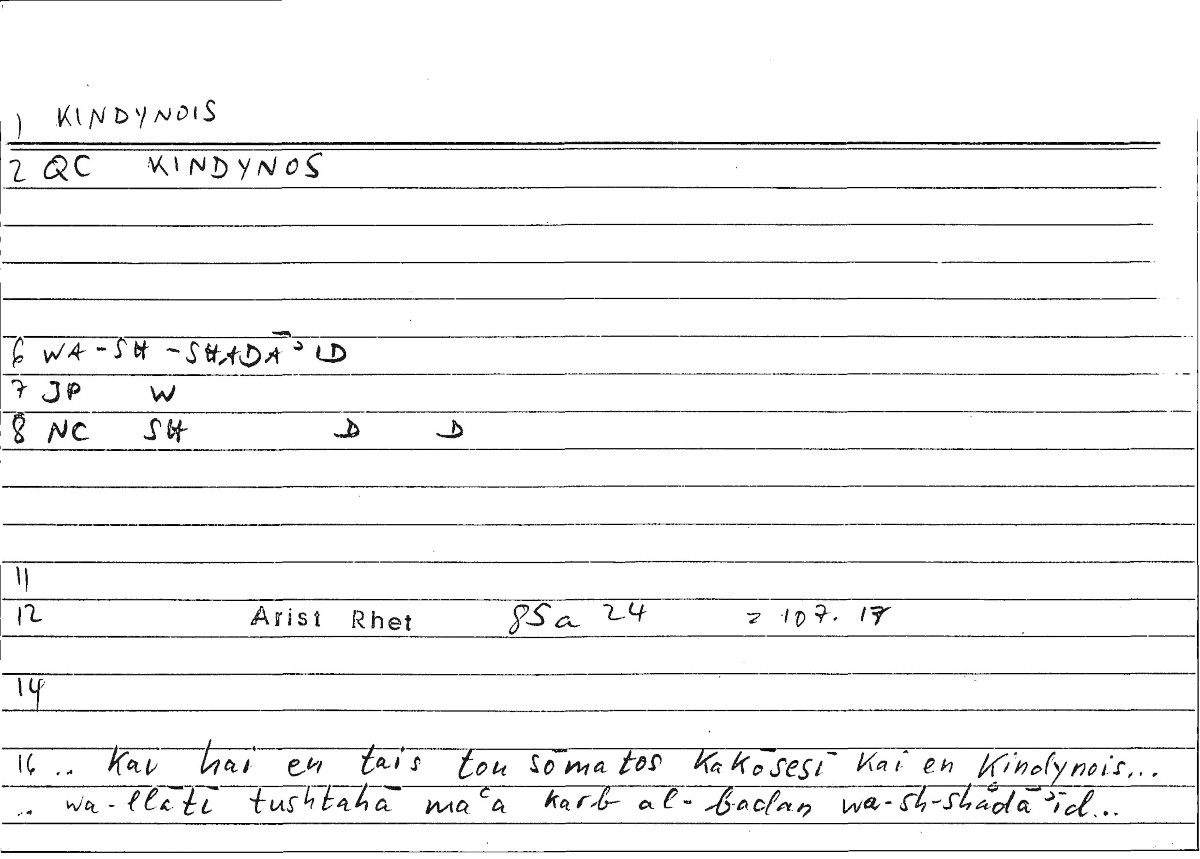 1 KINDYNOIS
2 QC KINDYNOS
6 WA-SH-SHADĀʾID
7 JP W
8 NC SH D D
11
12 Arist Rhet 85a 24 = 107.17
14
16 .. Kai hai en tais tou sōmatos kakōsesi kai en kindynois...
.. wa-llātī tushtahā maʿa karb al-badan wa-sh-shadāʾid...